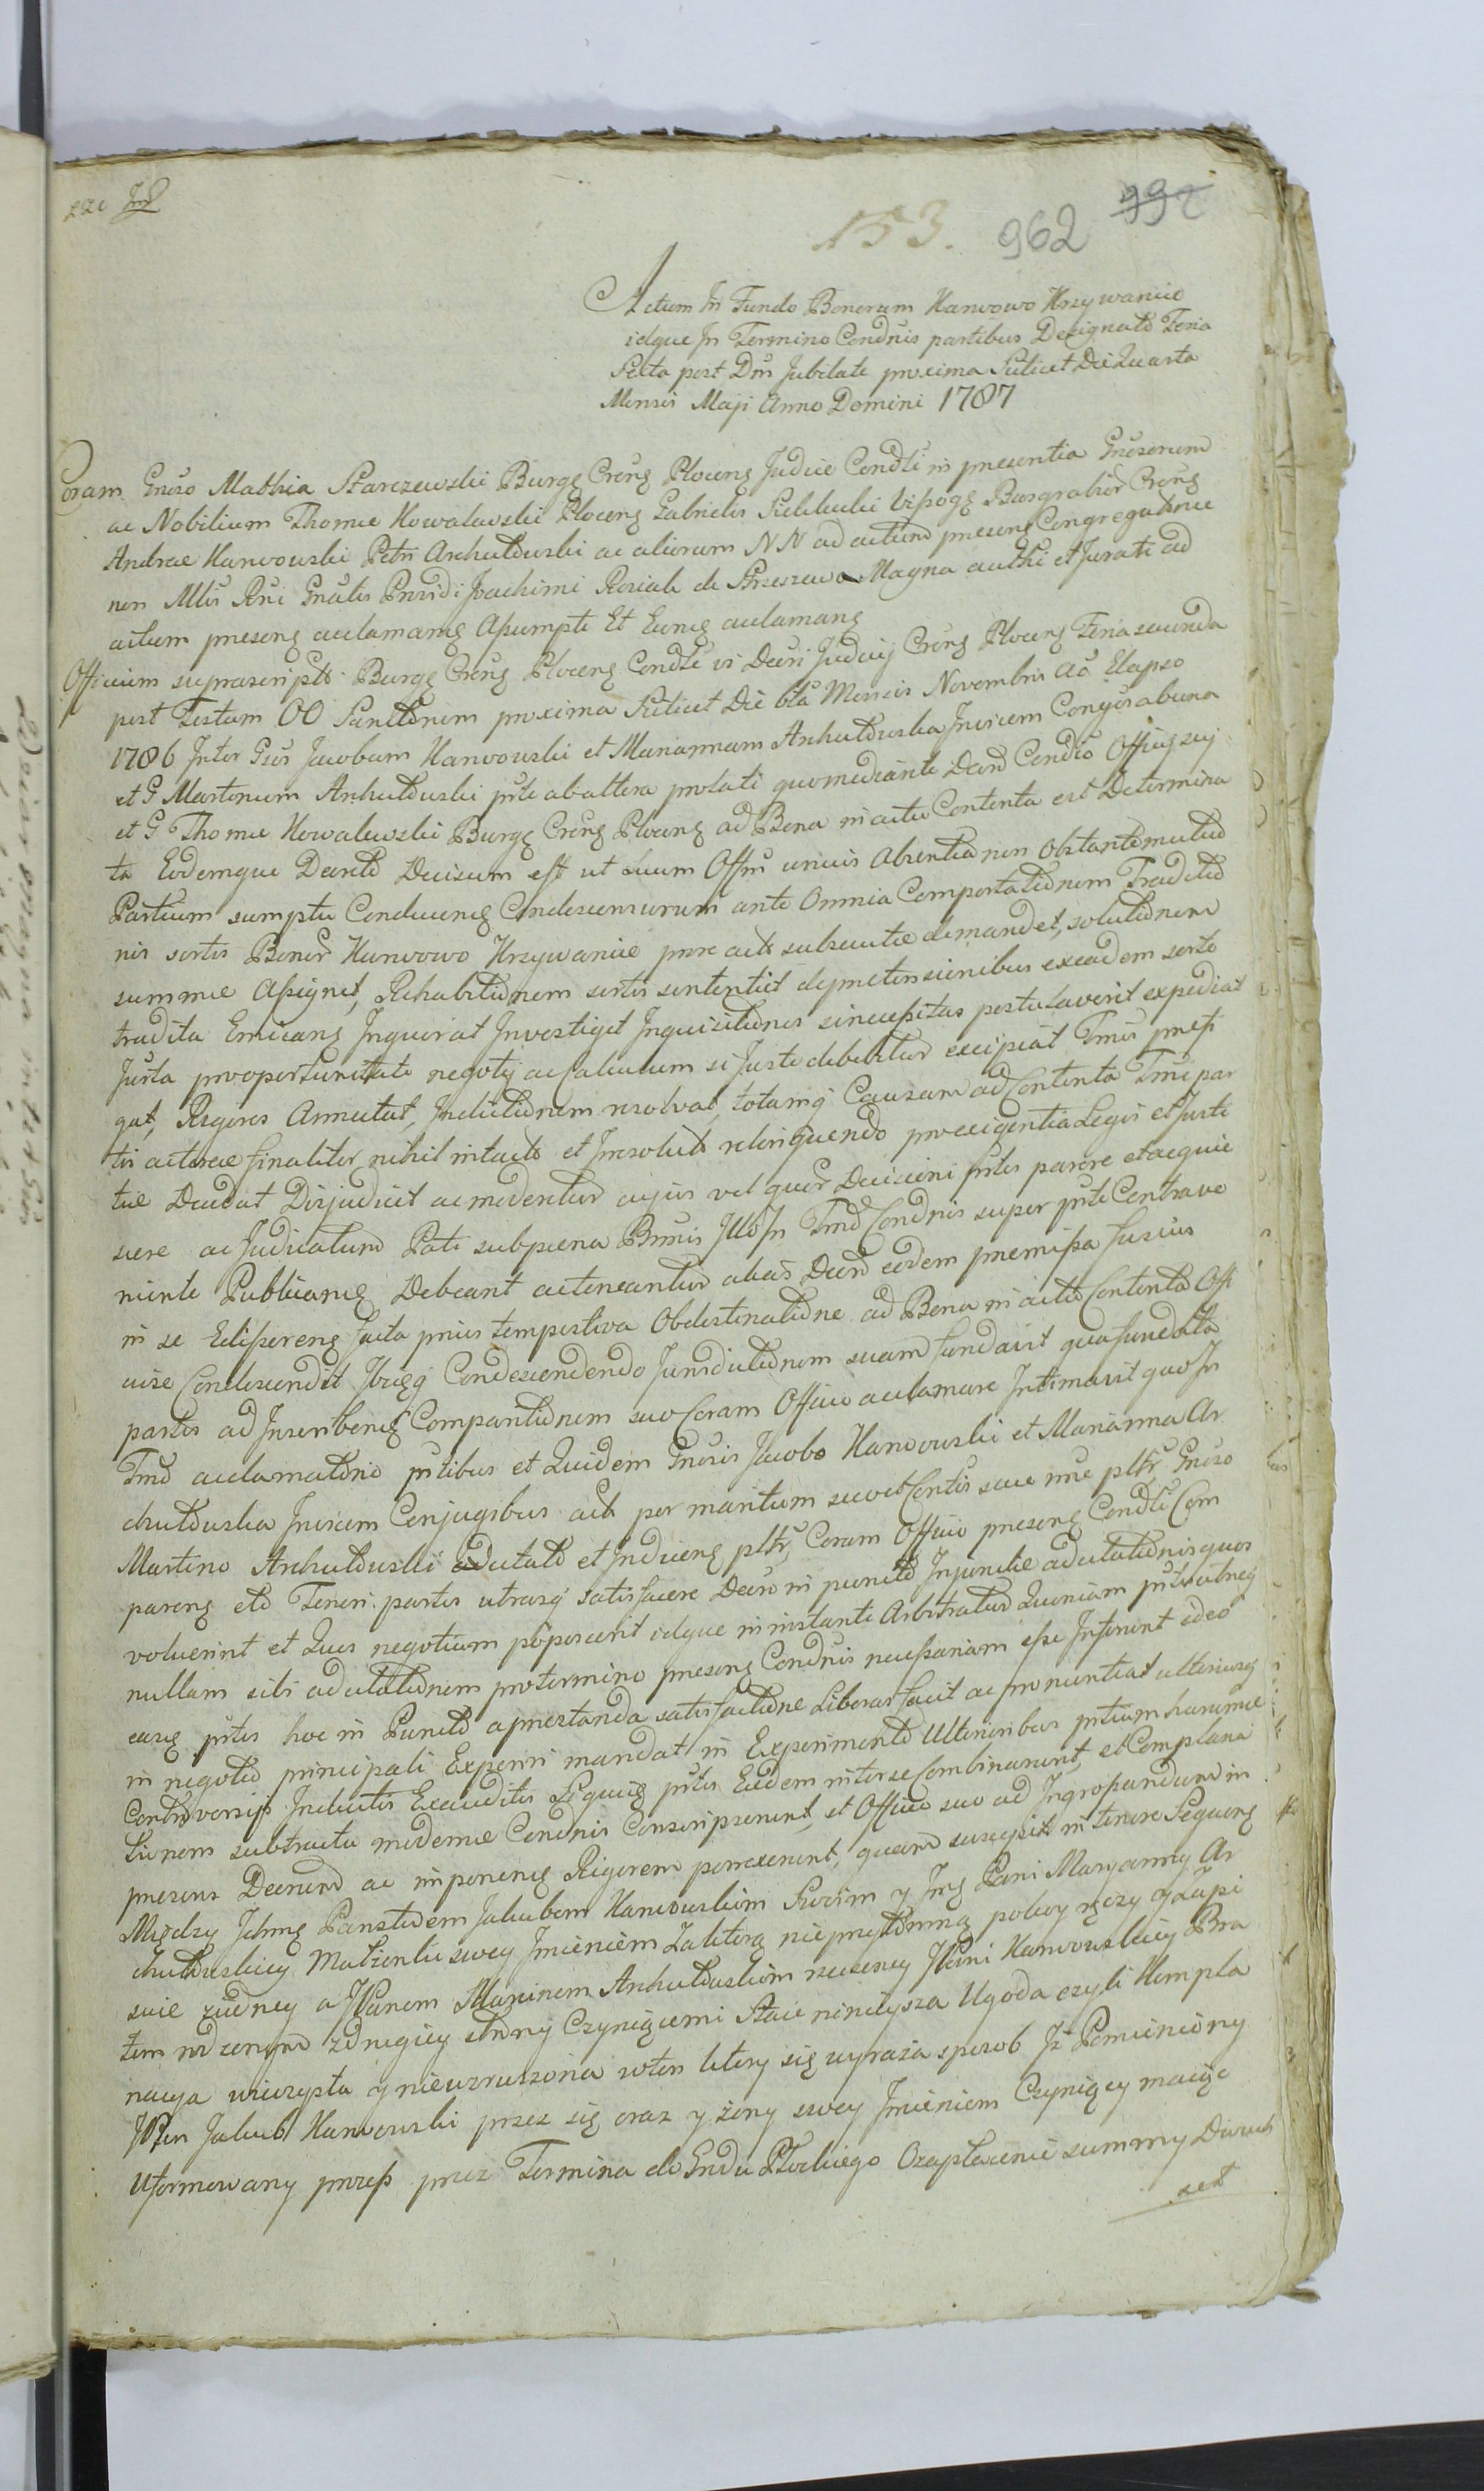 153. 962 992
Actum In Fundo Bonorum Karwowo Krzywanice
idque In Termino Condnis partibus Designato Feria
Sexta post Dnm Jubilate proxima Scilicet Die Quarta
Mensis Maji Anno Domini 1787
Coram Gnoso Mathia Starczewski Burgo Crens Plocens Judice Condli in presentia Gnosorum
ac Nobilium Thomae Kowalewski Plocens Gabrielis Burgrabior Crens
Andreae Karwowski Petri Archutowski ac aliorum NN ad actum presens Congregatorum
nen Mlis Rni Gnalis Providi Joachimi Roziak de Strzeszewo Magna authi et Jurati ad
actum presens acclamang Assumpti Et Eung acclamang
Officium suprascriptt Burgo Crens Plocens Condle vi Decri Judicij Crens Plocens Feria secunda
post Festum OO Sanctorum proxima Scilicet Die 6ta Mensis Novembris ao Elapso
1786 Inter Gsos Jacobum Karwowski et Mariannam Archutowska Invicem Conjuges ab una
et G Martinum Archutowski pste ab altera prolati quo mediante Decro Condio Officij suj
et G Thomae Kowalewski Burgo Crens Plocens ad Bona in actu Contenta est Determina
to Eodemque Decreto Decisum est ut suum Offm unius Absentia non Obstante mutuo
Partium sumptu Conducens Condescensurum ante Omnia Comportationem Traditio
nis sortis Bonor Karwowo Krzywanice pore acte subsecutae demandet, solutionem
summae Assignet, Rehabitionem sortis sententiet de pretensionibus ex eadem sorte
tradita Emicans Inquirat Investiget Inquisitiones si necessitas postulaverit expediat
Juxta pro opportunitate negotij ac Calculum si Juste debebitur excipiat Tmis
gat, Rigores Annectat, Inductionem resolvat, totamq Causam ad Contenta Tmi par
tis actorae finaliter nihil intacti et Irresoluti relinquendo pro exigentia Legis et Justi
tiae Decidat Disjudicet ac modentur cujus vel quor Decisioni pstes parere et acquie
scere ac Judicatum Pati sub poena Bnnis Illo In Tmo Condnis super pste Contrave
niente Publicang Debeant ac teneantur alias Decro eodem premissa fusius
in se Edisserens facta prius tempestiva Obdestinatione ad Bona in actu Contenta Offi
ciose Condescendit Ibiq Condescendendo Jurisdictionem suam fundavit qua fundata
partes ad Inscribeng Comparitionem suo Coram Officio acclamare Intimavit quo In
Tmo acclamationis pstibus et Quidem Gnosis Jacobo Karwowski et Marianna Ar
chutowska Invicem Conjugibus acte per maritum suo et Consortis suae nne pltr Gnoso
Martino Archutowski Adcitato et Induceng pltr, Coram Officio presens Condli Com
parens eto Teneri partes utrasq satisfacere Decro in puncto Injunctae adcitationis quos
voluerint et Quos negotium poposcerit idque in instanti Arbitratur Quoniam pstes utraeq
nullam sibi adcitationem pro termino presens Condnis necessariam esse Inferent ideo
easq pstes hoc in Puncto a prestanda satisfactione Liberas facit ac pronuntiat ulteriusq
in negotio principali Experiri mandat in Experimento Ulterioribus pstium harumce
Controversijs Inductis Exauditis Sequns pstes Eaedem inter se Combinarunt, et Complana
tionem sub tractu modernae Condnis Conscripserunt, et Officio suo ad Ingrossandum in
presens Decretum ac imponeng Rigorem porrexerunt, quam suscepit in tenore Sequens
Między Ichmę Państwem Jakubem Karwowskim Swoim y Jmę Pani Maryanny Ar
chutowskiey Małżonki swey Imieniem Za którą nieprzytomną pokoy ręczy y
scie ziedney a JPanem Marcinem Archutowskim rzeczoney JPani Karwowskiey Bra
tem rodzonym zdrugiey strony Czyniącemi Staie ninieysza Ugoda czyli Kompla
nacya wieczysta y niewzruszona wten ktory się wyraża sposob Iż Pomieniony
JPan Jakub Karwowski przez się oraz y żony swey Imieniem Czyniącey maiąc
Uformowany process przez Termina do Grodu Płockiego Ozapłacenie summy Dwuch
set